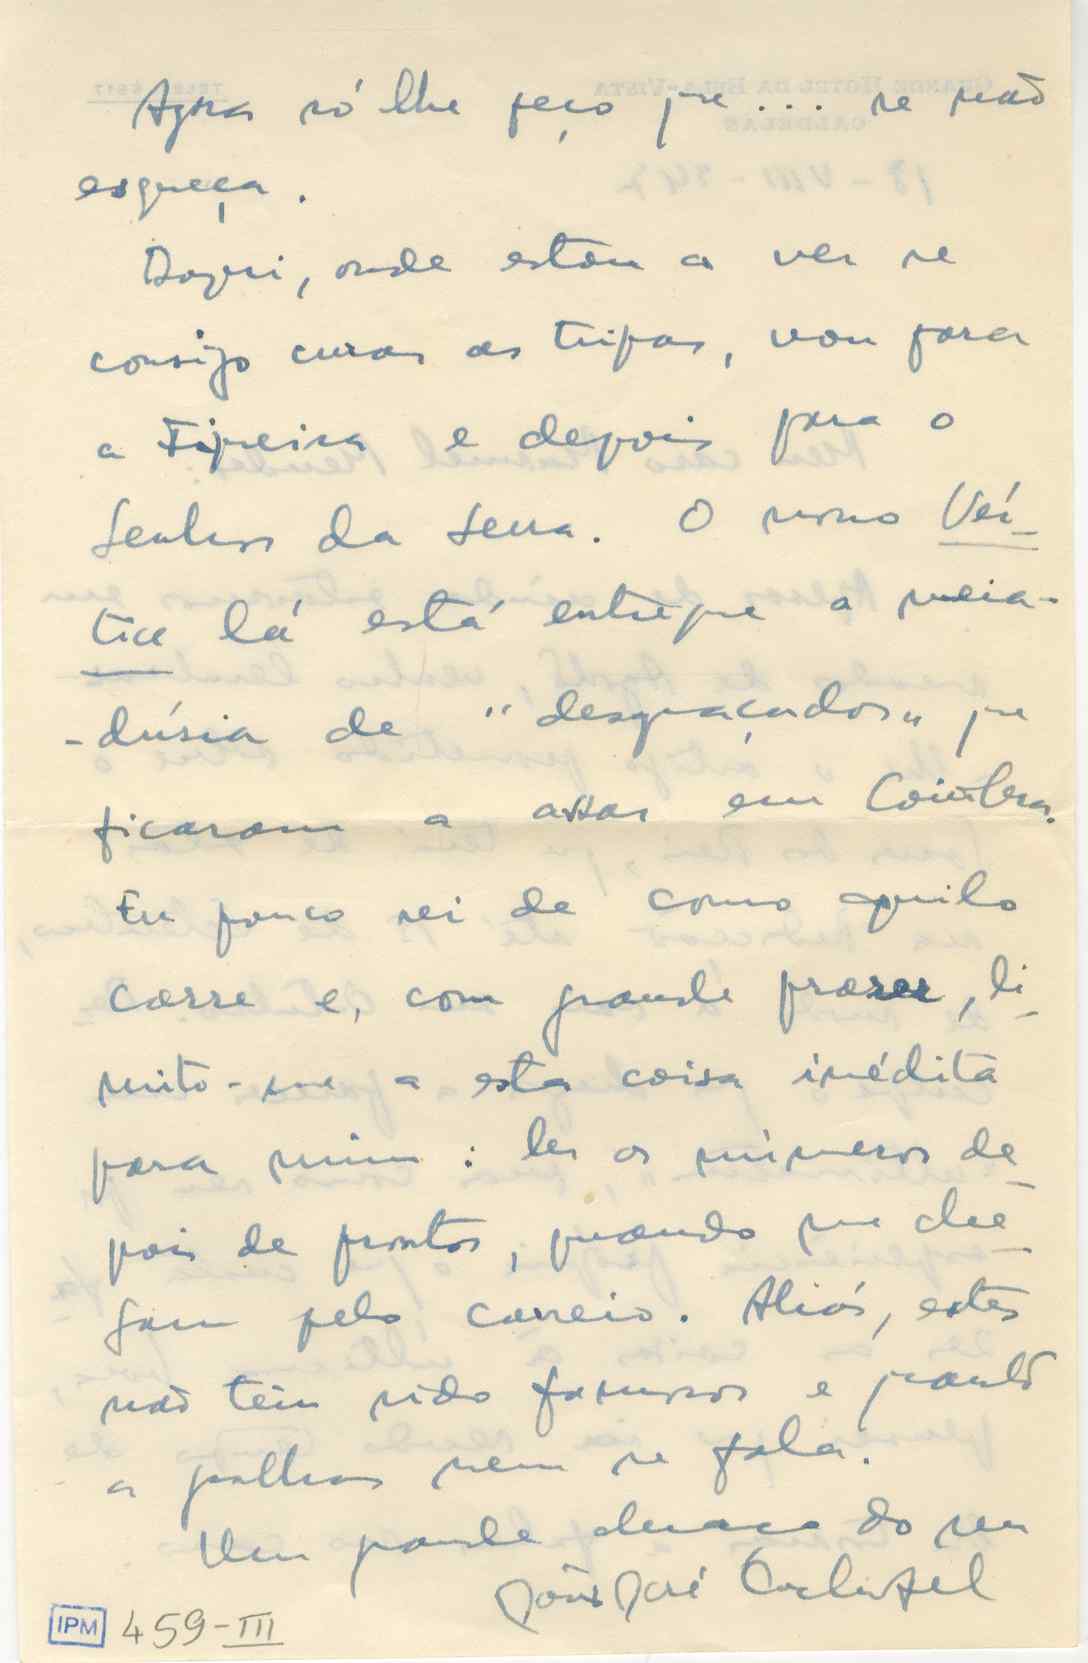 Agora só lhe peço que... se não
esqueça.
Daqui, onde estou a ver se
consigo curar as tripas, vou para
a Figueira e depois para o
Senhor da Serra. O nosso Vér-
tice lá está entregue a meia-
-dúsia de "desgraçados" que
ficaram a assar em Coimbra.
Eu pouco sei de como aquilo
corre e, com grande prazer, li-
mito-me a esta coisa inédita
para mim: ler os números de-
pois de prontos, quando me che-
gam pelo correio. Aliás, estes
não têm sido famosos e quanto
a gralhas nem se fala.
Um grande abraço do seu
João José Cochofel
IPM 459-III